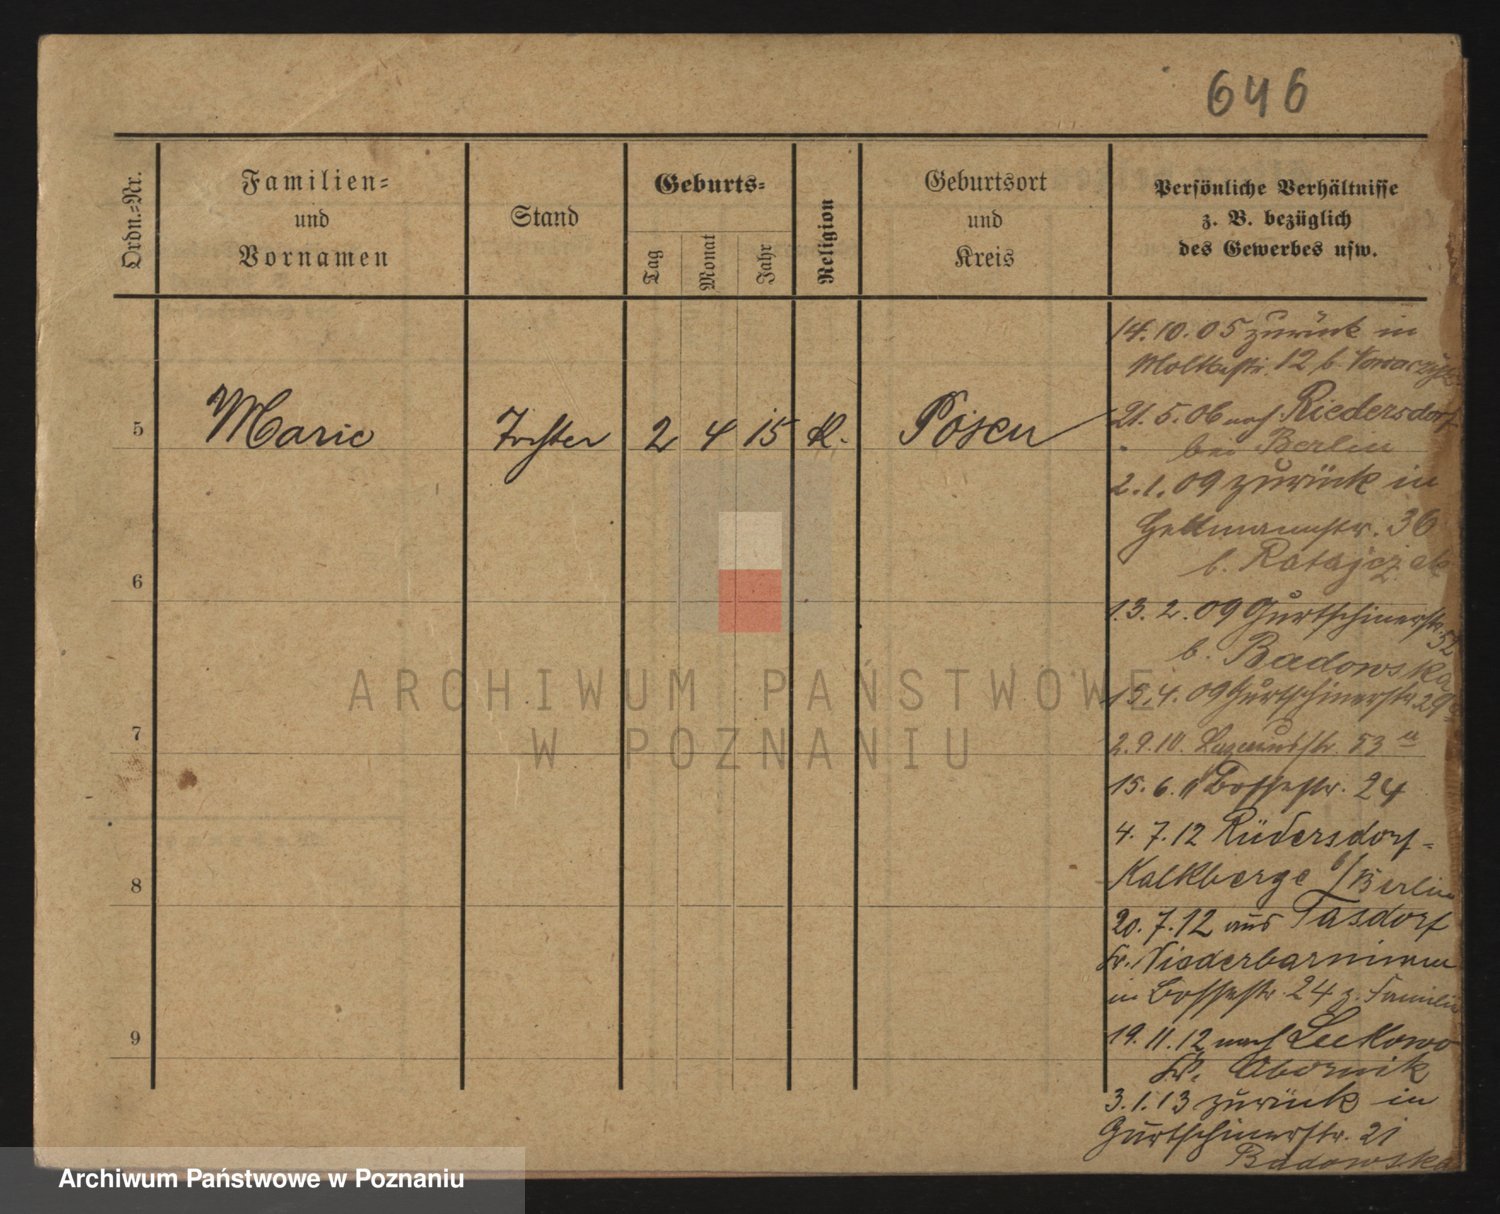 646
Ordn.-Nr.
Familien-
und
Vornamen
Stand
Geburts-
Tag
Monat
Jahr
Religion
Geburtsort
und
Kreis
Persönliche Verhältnisse
z. B. bezüglich
des Gewerbes usw.
14.10.05 zurück in
Moltkestr. 12 b.
5 Marie Tochter 2 4 15 K. Posen
21.5.06 nach Riedersdorf
bei Berlin
2.1.09 zurück in
36
b. Ratajczak
6
13.2.09 Gurtschinerstr. 52
b. Badowska
15.4.09 Gurtschinerstr. 29
ARCHIWUM PAŃSTWOWE
W POZNANIU
7
2.9.10. 53 a
15.6.11 Bossestr. 24
4.7.12 Rüdersdorf-
Kalkberge b/Berlin
8
20.7.12 aus Tasdorf
Kr. Niederbarnimm
in Bossestr. 24 z. Familie
19.11.12 nach
9
Kr. Obornik
3.1.13 zurück in
Gurtschinerstr. 21
Badowska
Archiwum Państwowe w Poznaniu